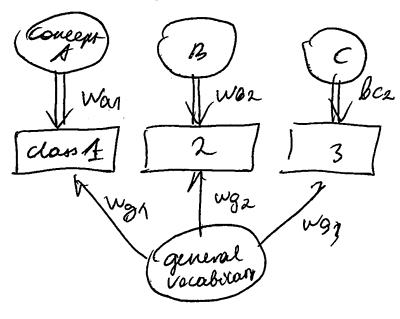 concept
A
B
C
wa1
wb2
bc2
class 1
2
3
wg1
wg2
wg3
general
vocabulary